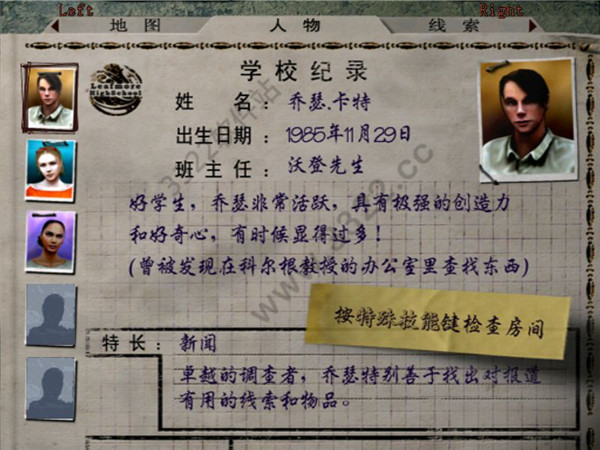 Left
Right
地图
人物
线索
学校纪录
Leafmore
HighSchool
姓名：乔瑟.卡特
出生日期：1985年11月29日
班主任：沃登先生
好学生，乔瑟非常活跃，具有极强的创造力
和好奇心，有时候显得过多！
(曾被发现在科尔根教授的办公室里查找东西)
按特殊技能键检查房间
特长：新闻
卓越的调查者，乔瑟特别善于找出对报道
有用的线索和物品。